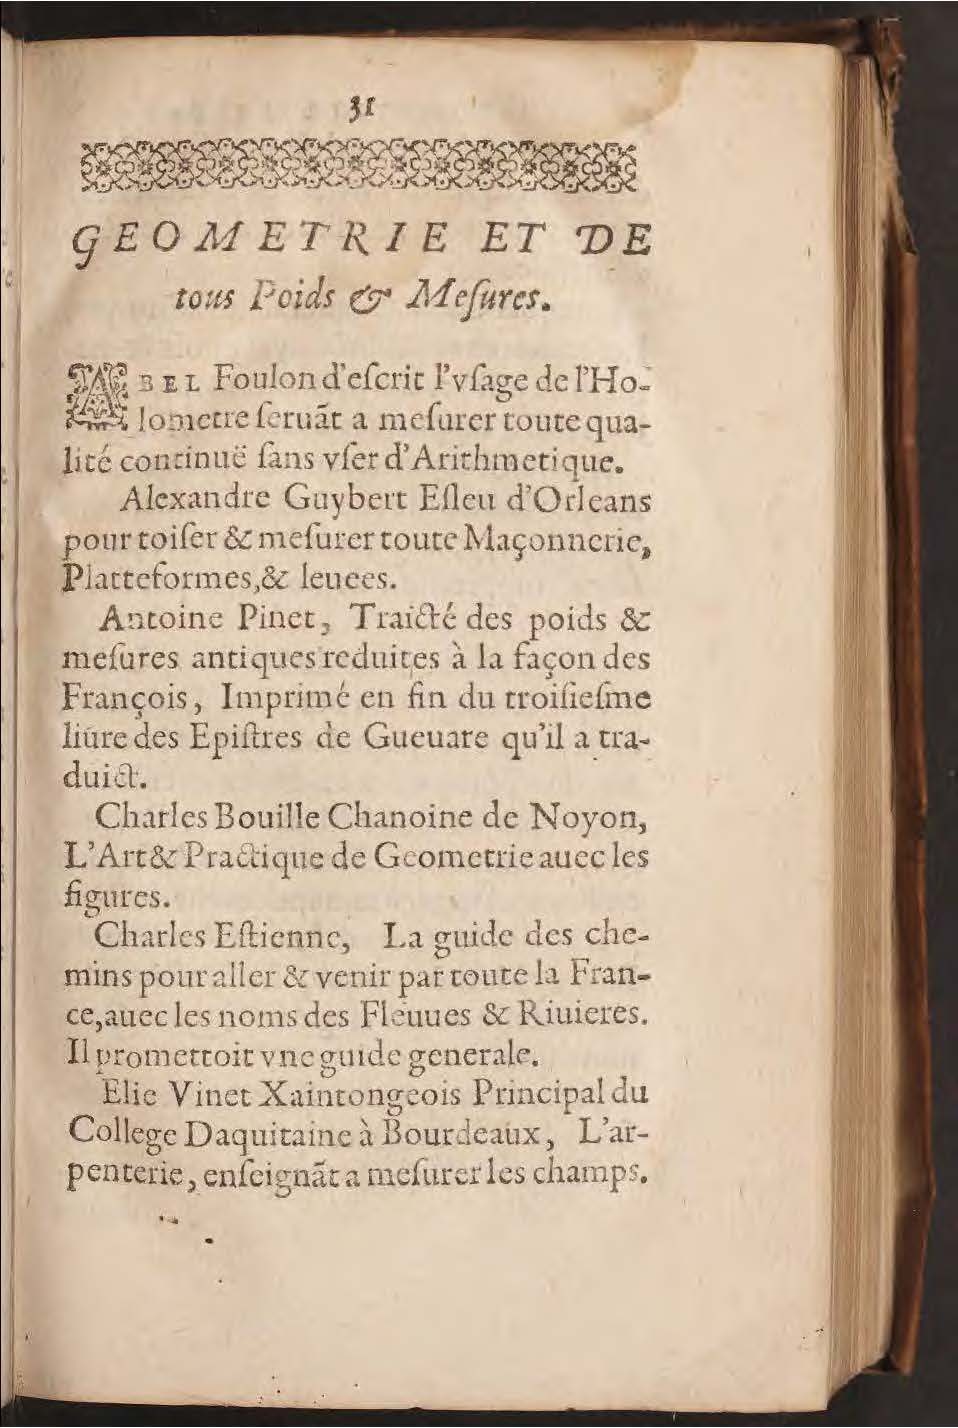 31
GEOMETRIE ET DE
tous Poids & Meſures.
ABEL Foulon d'eſcrit l'vſage de l'Ho-
lometre ſeruãt a meſurer toute qua-
lité continuë ſans vſer d'Arithmetique.
Alexandre Guybert Eſleu d'Orleans
pour toiſer & meſurer toute Maçonnerie,
Platteformes,& leuees.
Antoine Pinet, Traicté des poids &
meſures antiques reduites à la façon des
François, Imprimé en fin du troiſieſme
liure des Epiſtres de Gueuare qu'il a tra-
duict.
Charles Bouille Chanoine de Noyon,
L'Art & Practique de Geometrie auec les
figures.
Charles Eſtienne, La guide des che-
mins pour aller & venir par toute la Fran-
ce,auec les noms des Fleuues & Riuieres.
Il promettoit vne guide generale.
Elie Vinet Xaintongeois Principal du
College Daquitaine à Bourdeaux, L'ar-
penterie, enſeignãt a meſurer les champs.